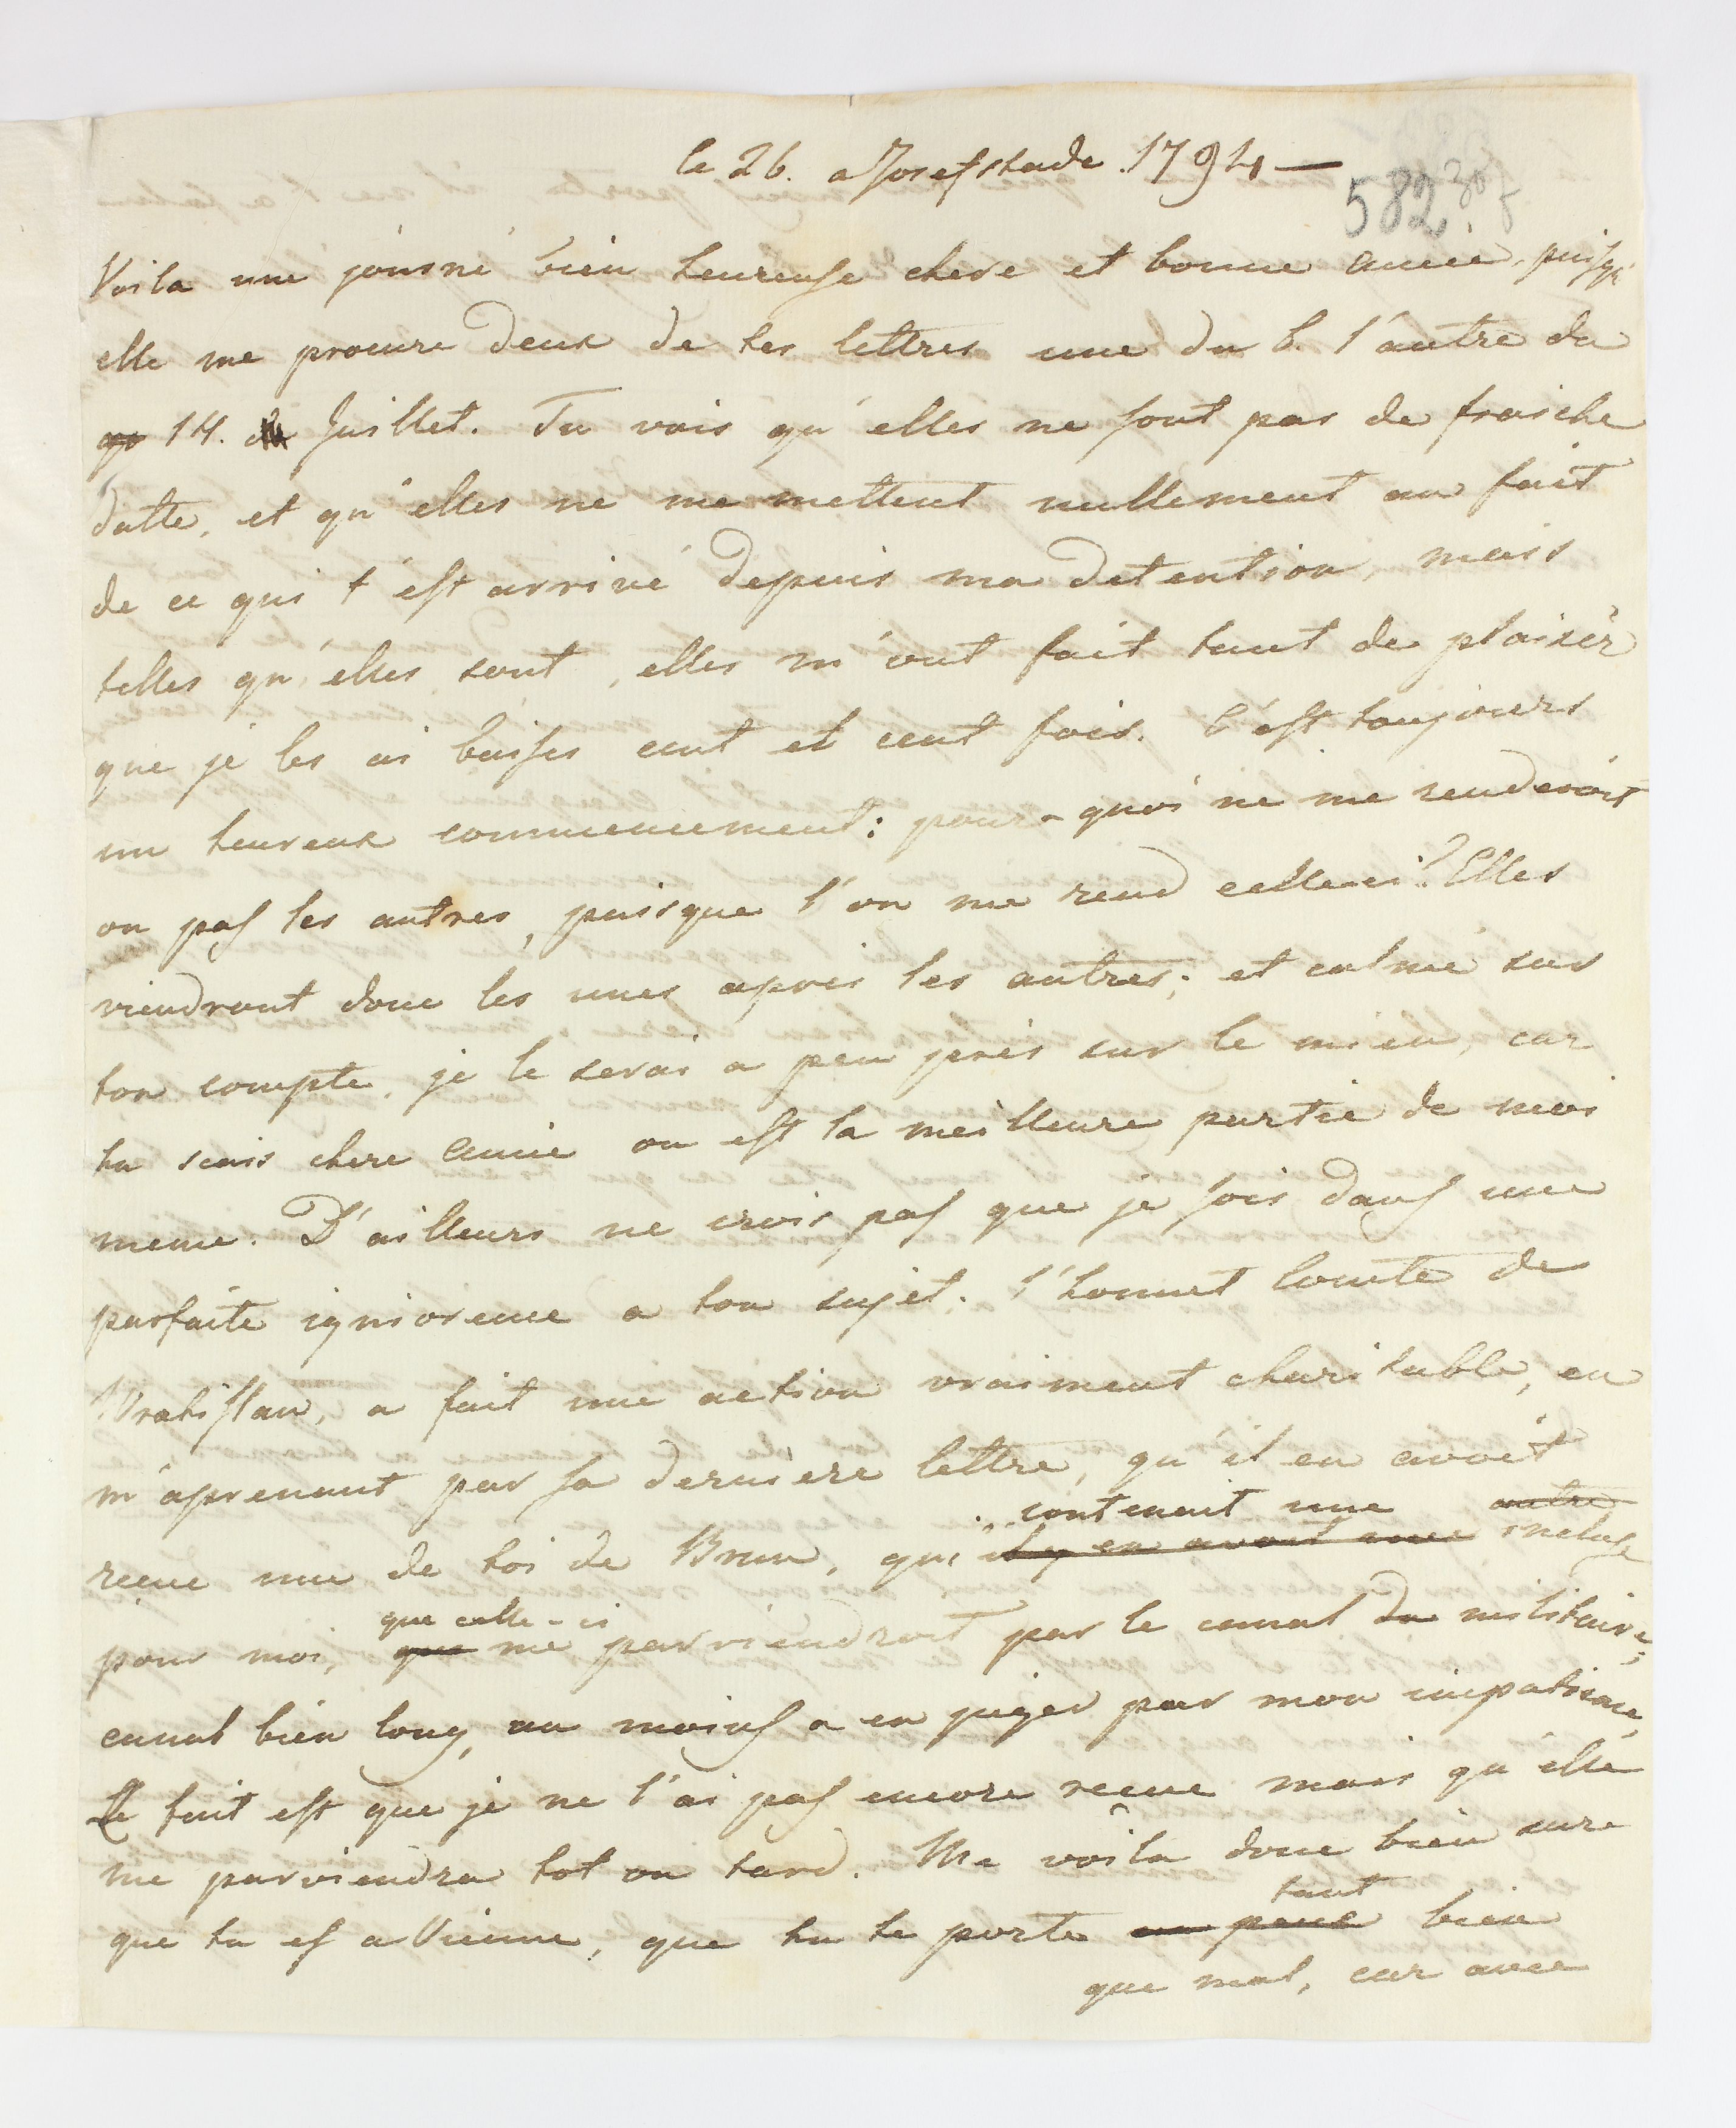 le 26. a Josefstade. 1794 —
582
Voila une journé bien heureuse chere et bonne amie, puisqu'
elle me procure deux de tes lettres une du 6. l'autre du
14. Juillet. Tu vois qu'elles ne sont pas de fraiche
datte, et qu'elles ne me mettent nullement au fait
de ce qui t'est arrivé depuis ma detention, mais
telles qu'elles sont, elles m'ont fait tant de plaisir
que je les ai baises cent et cent fois. C'est toujours
un heureux commencement: pour-quoi ne me renderoit
on pas les autres, puisque l'on me rend celle-ci? Elles
viendront donc les unes apres les autres; et calmé sur
ton compte, je le serai a peu près sur le mien, car
tu scais chere amie ou est la meilleure partie de moi
meme. D'ailleurs ne crois pas que je sois dans une
parfaite igniorence a ton sujet. l'honnet Comte de
Wratislau, a fait une action vraiment charitable, en
m'aprenant par sa derniere lettre, qu'il en avoit
contenait une autre
recue une de toi de Brun, qui il y en avoit une incluse
que celle-ci
pour moi, que me parviendroit par le canal du militaire,
canal bien long, au moins a en juger par mon impatience,
Le fait est que je ne l'ai pas encore recue mais qu'elle
me parviendra tot ou tard. Me voila donc bien sure
tant
que tu es a Vienne, que tu te porte un peux bien
que mal, car avec